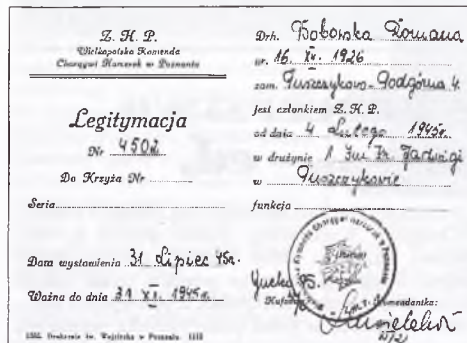 Z. H. P.
Wielkopolska Komenda
Chorągwi Harcerek w Poznaniu
Legitymacja
Nr 4502
Do Krzyża Nr
Seria
Data wystawienia 31 Lipiec 45r.
Ważna do dnia 31 XI. 1945r.
1552. Drukarnia św. Wojciecha w Poznaniu.
Drh. Boborska Romana
ur. 16. XII. 1926
zam. Puszczykowo-Podgórna 4.
jest członkiem Z. H. P.
od dnia 4 Lutego 1945r.
w drużynie 1 Im Kr. Jadwigi
w Puszczykowie
funkcja
Hufcowa
Komendantka: